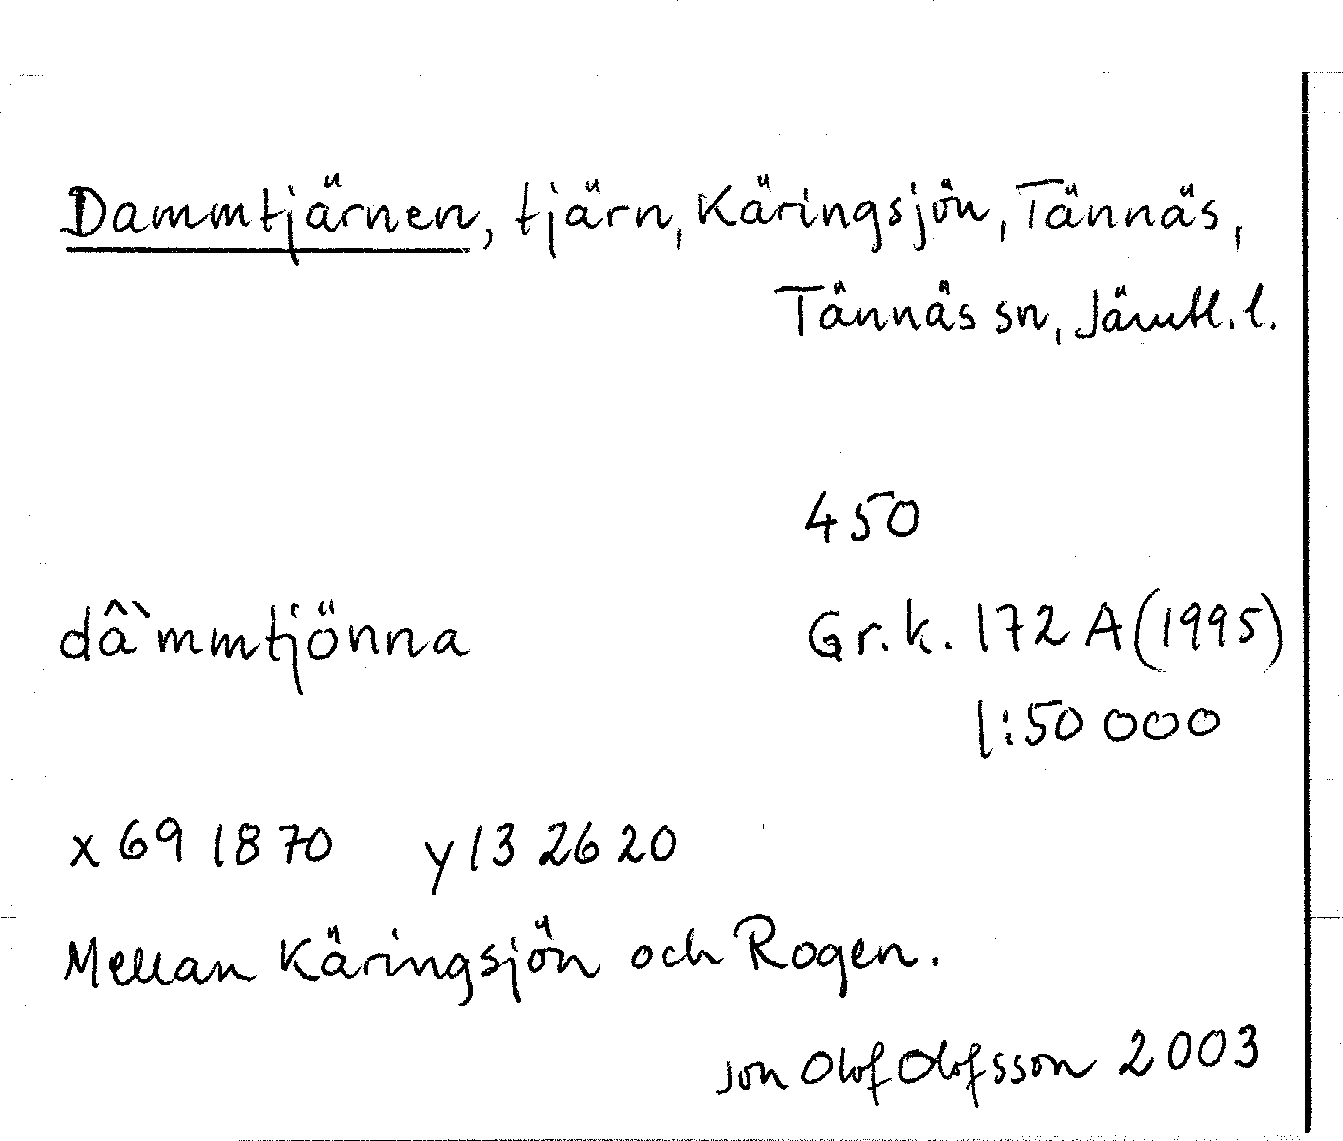 Dammtjärnen, tjärn, Käringsjön, Tännäs,
Tännäs sn, Jämtl. l.
450
dâ`mmtjönna
Gr.k. 172 A (1995)
1:50 000
x 69 18 70 y 13 26 20
Mellan Käringsjön och Rogen.
Jon Olof Olofsson 2003